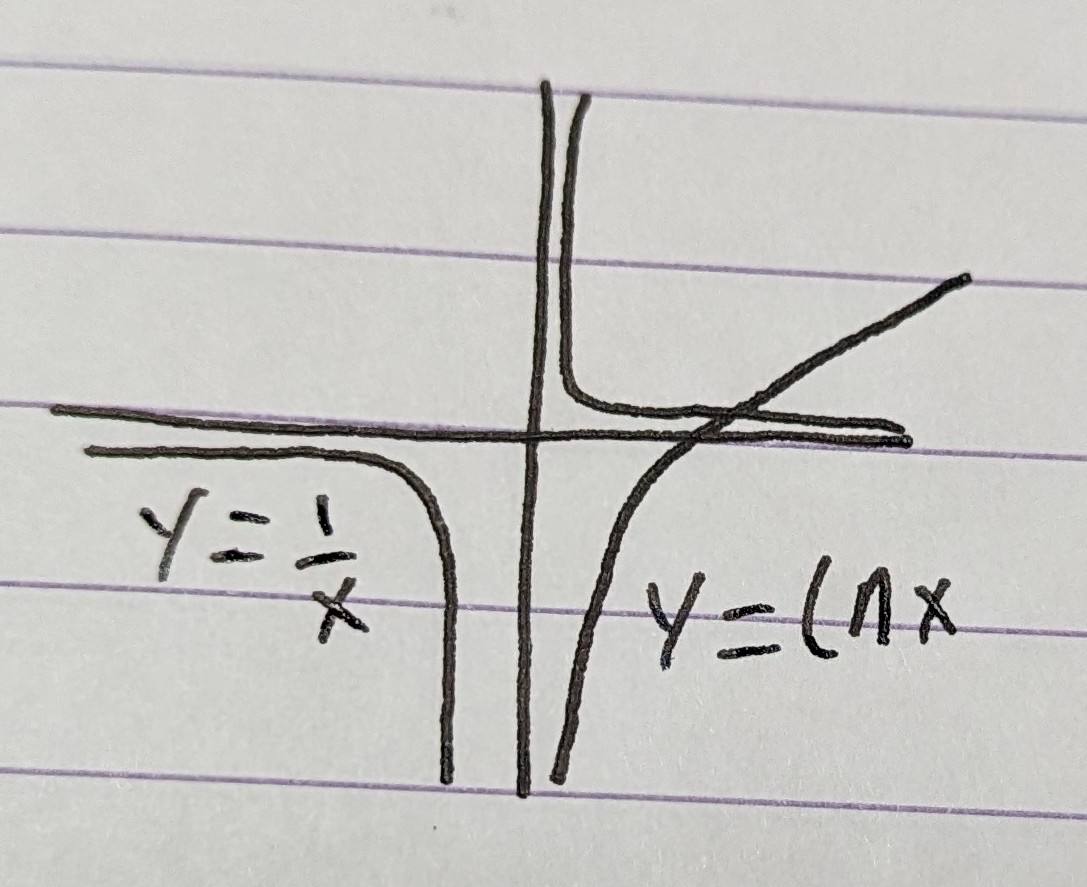 y = 1/x
y = ln x